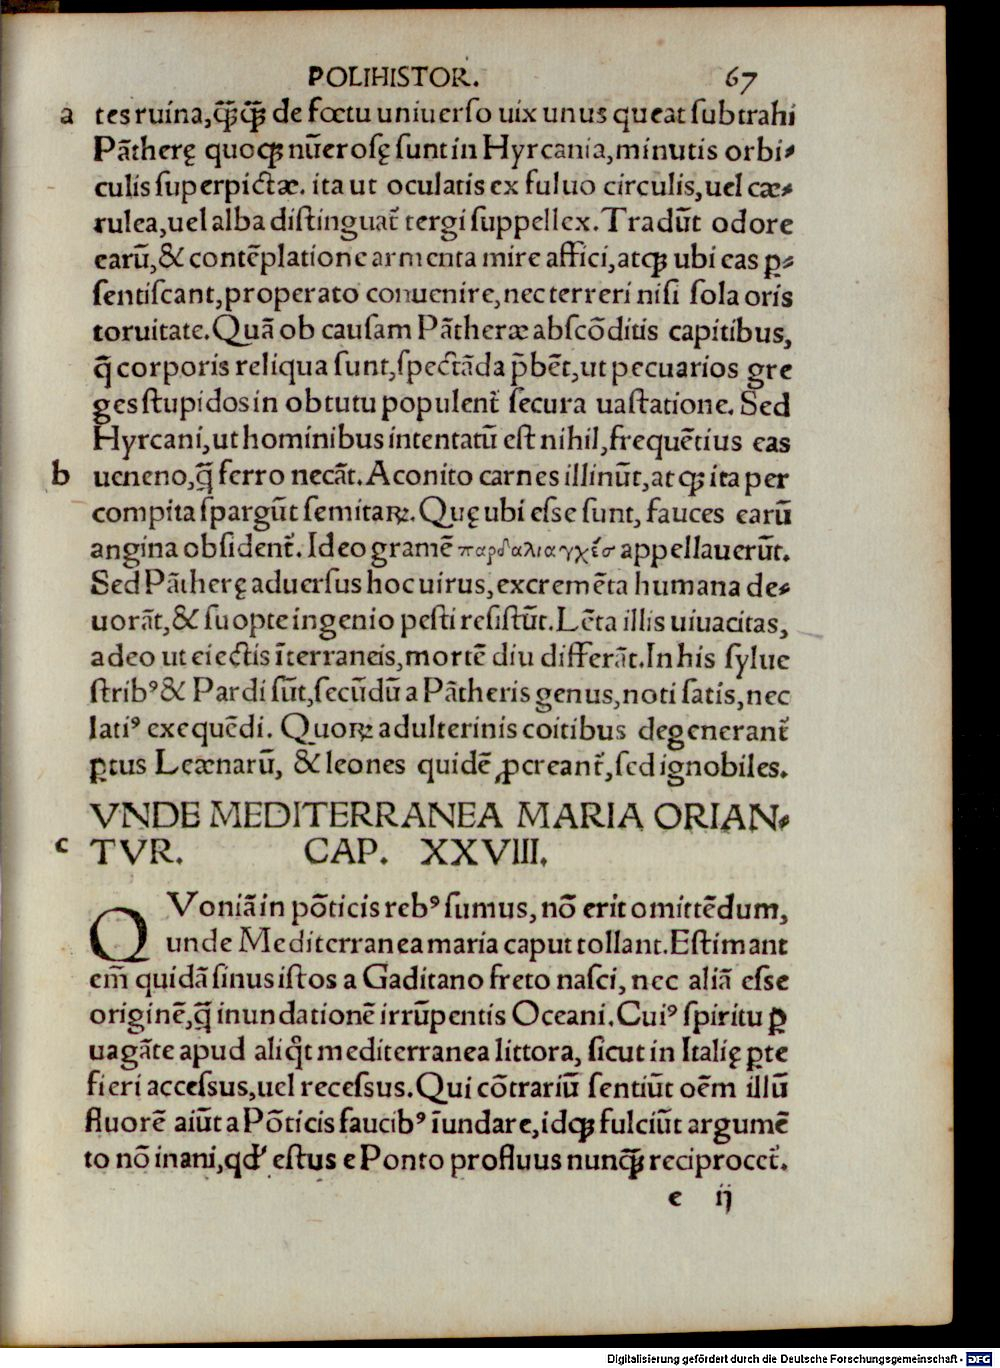 POLIHISTOR. 67
a tes ruina, q̃q̃ de fœtu uniuerso uix unus queat subtrahi
Pãtherę quoqꝫ nũerosę sunt in Hyrcania, minutis orbi-
culis superpictæ. ita ut oculatis ex fuluo circulis, uel cæ-
rulea, uel alba distinguat᷑ tergi suppellex. Tradũt odore
earũ, & contẽplatione armenta mire affici, atqꝫ ubi eas ꝑ-
sentiscant, properato conuenire, nec terreri nisi sola oris
toruitate. Quã ob causam Pãtheræ abscõditis capitibus,
q̃ corporis reliqua sunt, spectãda p̃bẽt, ut pecuarios gre
ges stupidos in obtutu populent᷑ secura uastatione. Sed
Hyrcani, ut hominibus intentatũ est nihil, frequẽtius eas
b ueneno, q̃ ferro necãt. Aconito carnes illinũt, atqꝫ ita per
compita spargũt semitaꝝ. Quę ubi esse sunt, fauces earũ
angina obsident᷑. Ideo gramẽ παρδαλιαγχὲσ appellauerũt.
Sed Pãtherę aduersus hoc uirus, excremẽta humana de-
uorãt, & suopte ingenio pesti resistũt. Lẽta illis uiuacitas,
adeo ut eiectis ĩterraneis, mortẽ diu differãt. In his sylue
stribꝰ & Pardi sũt, secũdũ a Pãtheris genus, noti satis, nec
latiꝰ exequẽdi. Quoꝝ adulterinis coitibus degenerant᷑
ꝑtus Leænarũ, & leones quidẽ ꝓcreant᷑, sed ignobiles.
VNDE MEDITERRANEA MARIA ORIAN-
c TVR. CAP. XXVIII.
QVoniã in põticis rebꝰ sumus, nõ erit omittẽdum,
unde Mediterranea maria caput tollant. Estimant
em̃ quidã sinus istos a Gaditano freto nasci, nec aliã esse
originẽ, q̃ inundationẽ irrũpentis Oceani. Cuiꝰ spiritu ꝑ
uagãte apud aliq̃t mediterranea littora, sicut in Italię ꝑte
fieri accessus, uel recessus. Qui cõtrariũ sentiũt oẽm illũ
fluorẽ aiũt a Põticis faucibꝰ ĩundare, idqꝫ fulciũt argumẽ
to nõ inani, qđ estus e Ponto profluus nunq̃ reciprocet᷑.
e ij
Digitalisierung gefördert durch die Deutsche Forschungsgemeinschaft - DFG